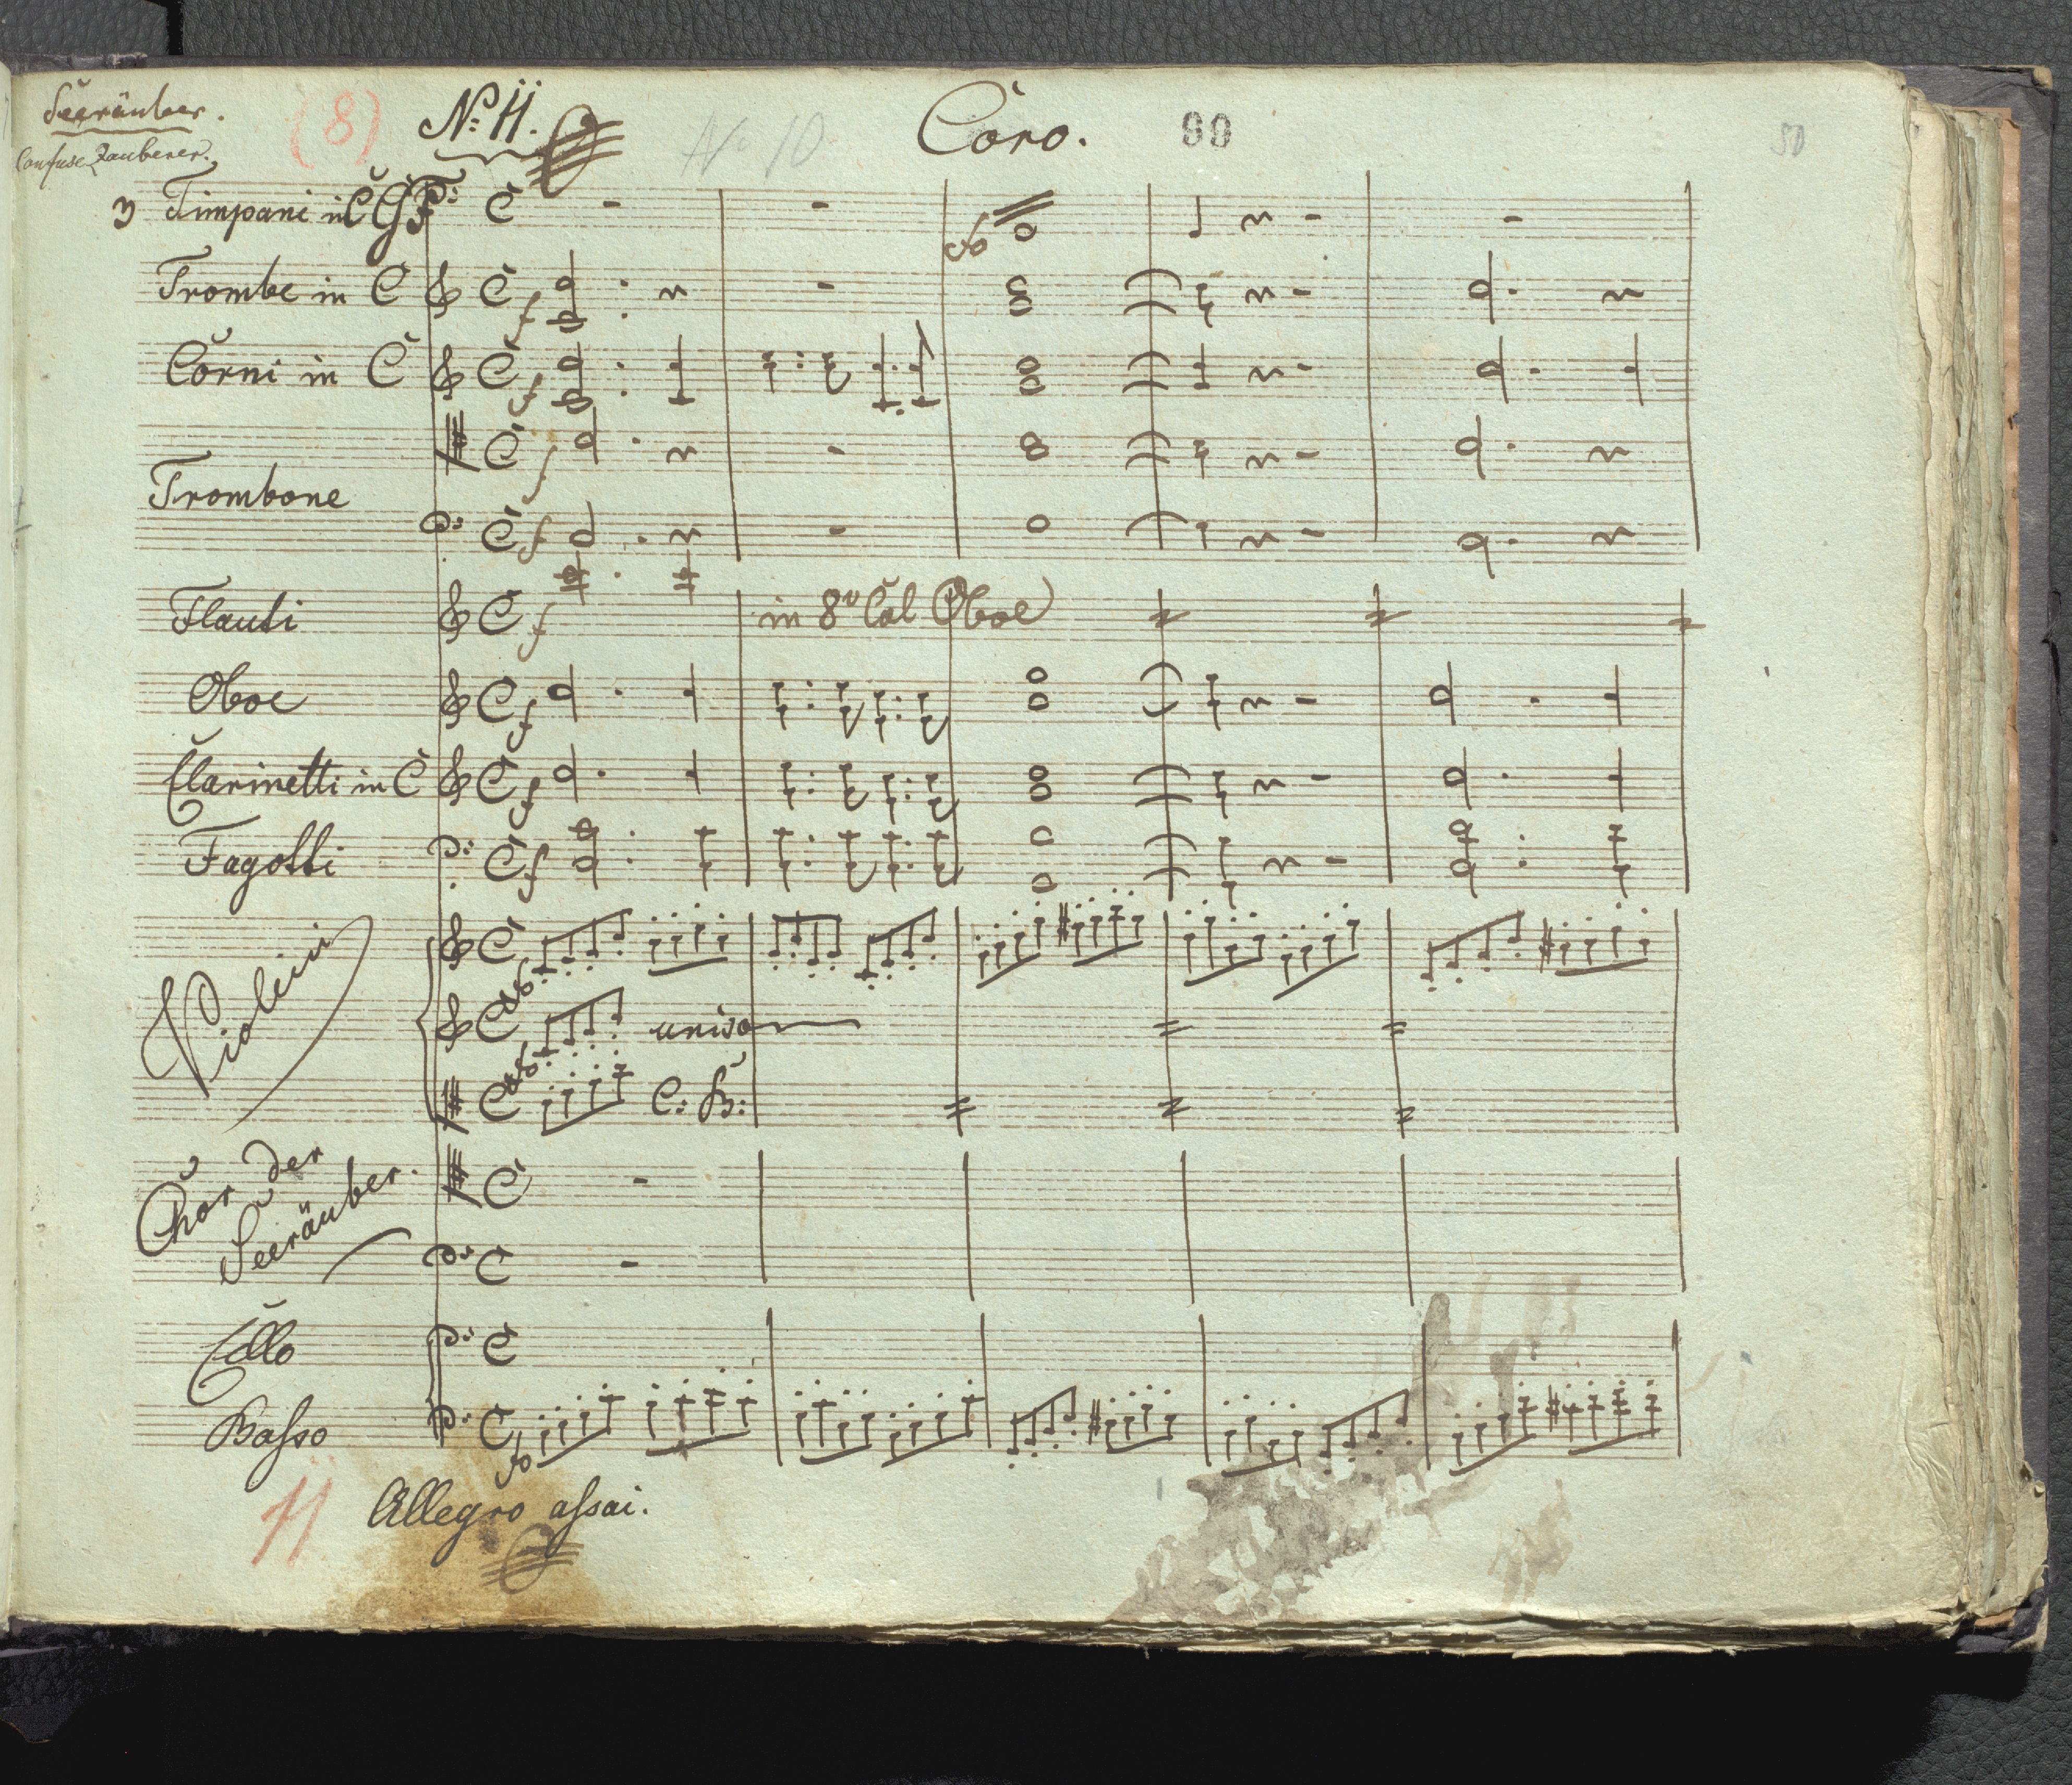 Seeräuber.
Confuse Zauberer.
(8)
No: 11.
No 10
Coro.
90
3 Timpani in C G F
Trombe in C
f
Corni in C
f
f
Trombone
f
Flauti
f
in 8v Col Oboe
Oboe
f
Clarinetti in C
f
Fagotti
f
Violini
uniso
C: B:
Chor der
Seeräuber.
Cello
Basso
fo
11
Allegro assai.